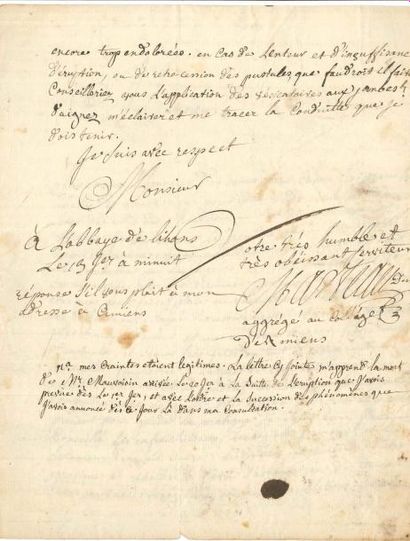 encore trop endolorées. en cas de Lenteur et d'insuffisance
d'éruption, ou de retrocession des pustules que faudroit il faire
Conseilleriez vous L'application des vesicatoires aux jambes?
daignez m'éclairer et me tracer la Conduitte que je
dois tenir.
Je suis avec respect
Monsieur
à L'abbaye de lihons
Le à minuit
réponse S'il vous plait à mon
adresse à amiens
otre très humble et
très obéissant serviteur
aggrégé au College
D'amiens
mes craintes etoient legitimes. La lettre Cy jointe m'apprend la mort
de Mr. Mauvoisin arrivée Le à La Suitte de L'eruption que j'avois
prevue dès Le 1er, et avec L'ordre et la Succession des phénomènes que
j'avois annoncé dès ce jour Là dans ma Consultation.